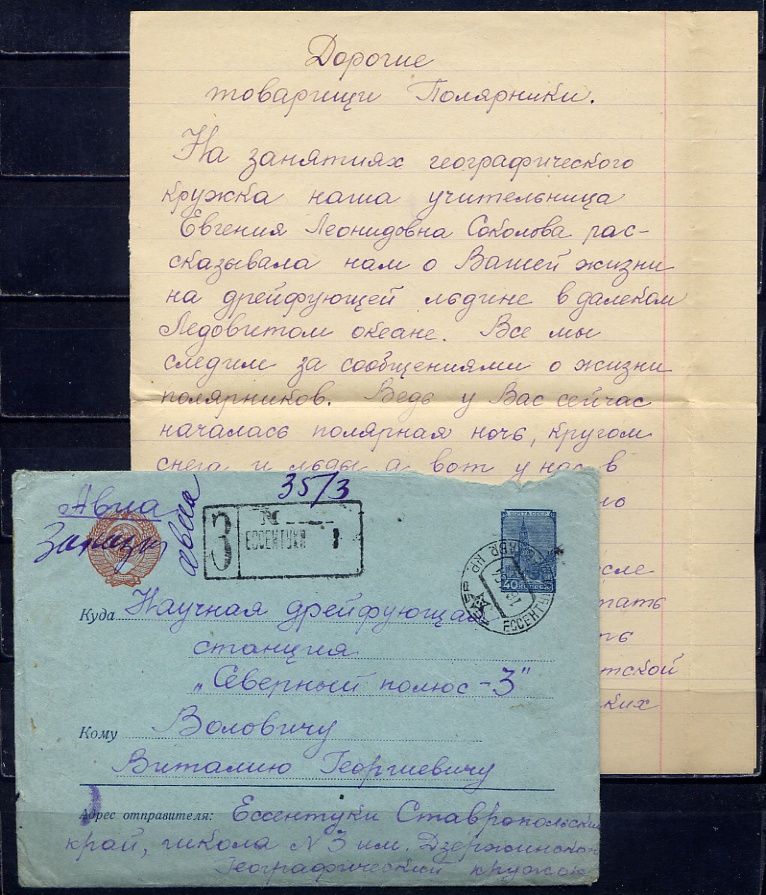 Дорогие
товарищи Полярники.
На занятиях географического
кружка наша учительница
Евгения Леонидовна Соколова рас-
сказывала нам о Вашей жизни
на дрейфующей льдине в далеком
Ледовитом океане. Все мы
следим за сообщениями о жизни
полярников. Ведь у Вас сейчас
началась полярная ночь, кругом
снега и льды а вот у нас в
тской
ких
Авиа
Заказн
авиа
35/3
З
№
ЕССЕНТУКИ 1
ПОЧТА СССР
40
ЕССЕНТУКИ
Куда Научная дрейфующая
станция
„Северный полюс-3"
Кому Воловичу
Виталию Георгиевичу
Адрес отправителя: Ессентуки Ставропольский
край, школа N 3 им. Дзержинского
Географический кружок